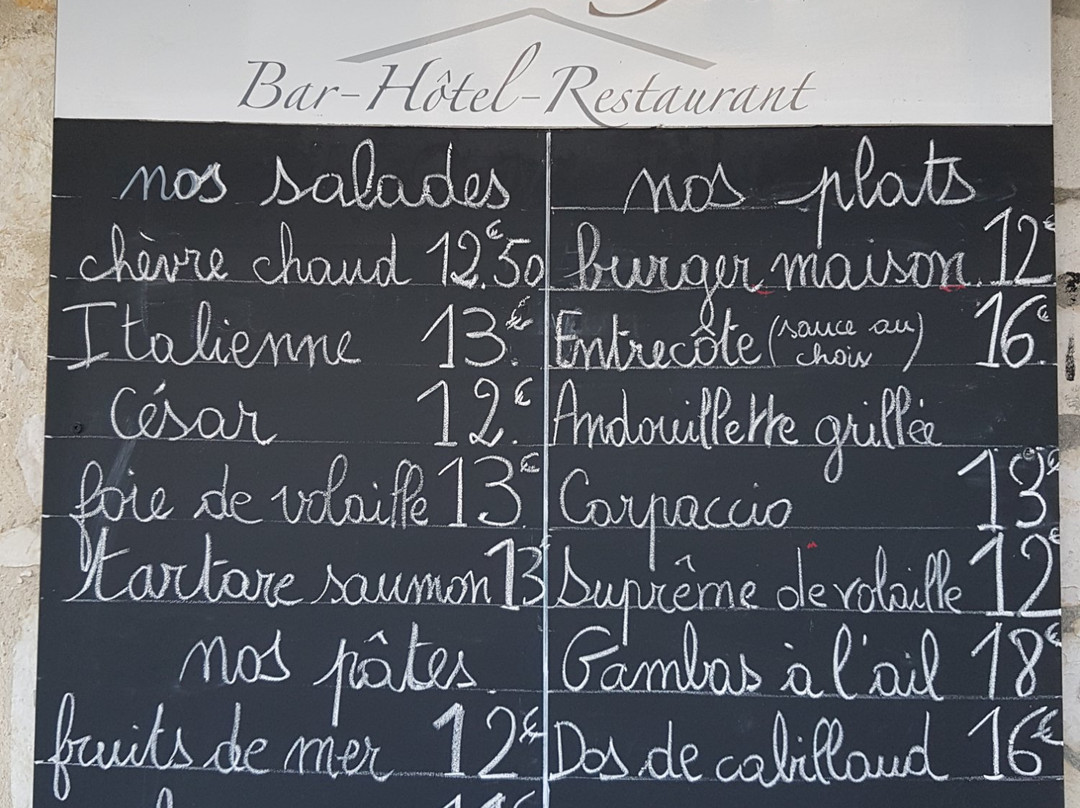 Bar-Hôtel-Restaurant
nos salades
chèvre chaud 12.€50
Italienne 13.€
César 12.€
foie de volaille 13.€
tartare saumon 13
nos pâtes
fruits de mer 12€
nos plats
burger maison 12€
Entrecôte (sauce au choix) 16€
Andouillette grillée
Carpaccio 13€
Suprême de volaille 12
Gambas à l'ail 18€
Dos de cabillaud 16€